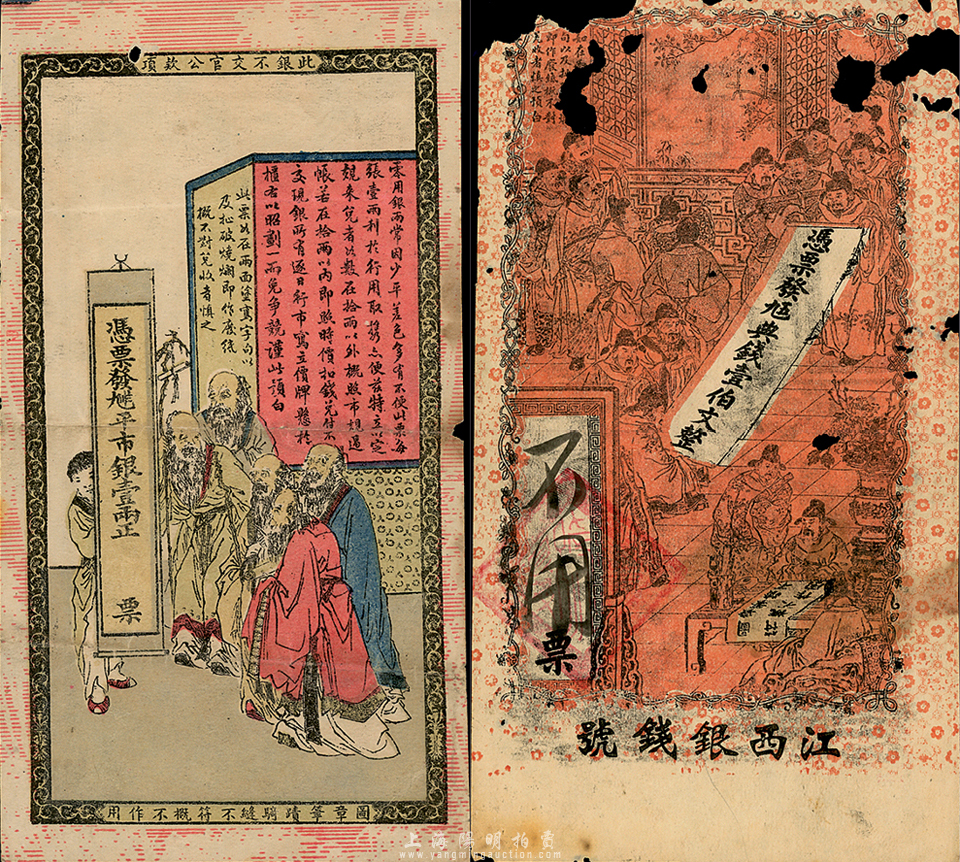 此銀不交官公欵項
零用銀兩常因少平差色多有不便此票每
張壹兩利於行用取携亦便茲特立以定
規來兌者以數在拾兩以外概照市規過
帳若在拾兩以內即照時價扣錢兌付不
交現銀所有逐日行市寫立價牌懸於
櫃右以昭劃一而免爭競謹此預白
此票如在兩面塗寫字句以
及扯破燒爛即作廢紙
概不對兌收者慎之
憑票發尫平市銀壹兩正
票
圖章筆蹟騎縫不符概不作用
收者慎之預白
憑票發尫典錢壹伯文整
不用
票
江西銀錢號
上海陽明拍賣
www.yangmingauction.com